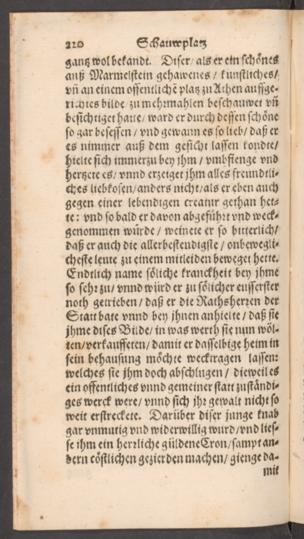 210 Schauwplatz
gantz wol bekandt. Diser / als er ein schönes
auß Marmelstein gehawenes / kunstliches /
vñ an einem offentlichē platz zu Athen auffge-
richtes bilde zu mehrmahlen beschauwet vñ
besichtiget hatte / ward er durch dessen schöne
so gar besessen / vnd gewann es so lieb / daß er
es nimmer auß dem gesicht lassen kondte /
hielte sich immerzu bey jhm / vmbfienge vnd
hertzete es / vnnd erzeiget jhm alles freundtli-
ches liebkosen / anders nicht / als er eben auch
gegen einer lebendigen creatur gethan het-
te: vnd so bald er davon abgeführt vnd weck-
genommen würde / weinete er so bitterlich /
daß er auch die allerbestendigste / onbewegli-
cheste leute zu einem mitleiden beweget hette.
Endtlich name söliche kranckheit bey jhme
so sehr zu / vnnd würd er zu sölicher eusserster
noth getrieben / daß er die Rathsherren der
Statt bate vnnd bey jhnen anhielte / daß sie
jhme dises Bilde / in was werth sie nun wöl-
ten / verkauffeten / damit er dasselbige heim in
sein behausung möchte wecktragen lassen:
welches sie jhm doch abschlugen / dieweil es
ein offentliches vnnd gemeiner statt zuständi-
ges werck were / vnnd sich jhr gewalt nicht so
weit erstreckete. Darüber diser junge knab
gar vnmutig vnd widerwillig wurd / vnd lies-
se ihm ein herrliche güldene Cron / sampt an-
dern cöstlichen gezierden machen / gienge da-
mit